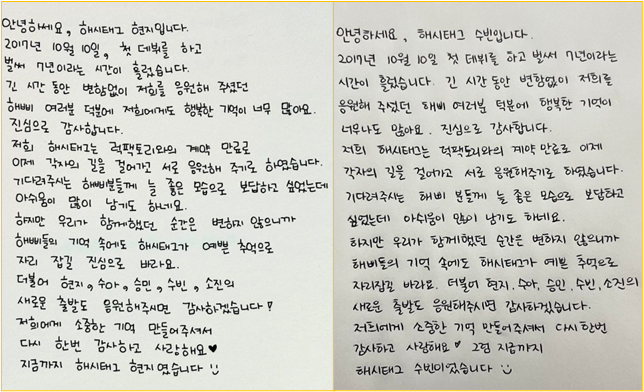 안녕하세요, 해시태그 현지입니다.
2017년 10월 10일, 첫 데뷔를 하고
벌써 7년이라는 시간이 흘렀습니다.
긴 시간 동안 변함없이 저희를 응원해 주셨던
해삐 여러분 덕분에 저희에게도 행복한 기억이 너무 많아요.
진심으로 감사합니다.
저희 해시태그는 럭팩토리와의 계약 만료로
이제 각자의 길을 걸어가고 서로 응원해 주기로 하였습니다.
기다려주시는 해삐분들께 늘 좋은 모습으로 보답하고 싶었는데
아쉬움이 많이 남기도 하네요.
하지만 우리가 함께했던 순간은 변하지 않으니까
해삐들의 기억 속에도 해시태그가 예쁜 추억으로
자리 잡길 진심으로 바라요.
더불어 현지, 수아, 승민, 수빈, 소진의
새로운 출발도 응원해주시면 감사하겠습니다!
저희에게 소중한 기억 만들어주셔서
다시 한번 감사하고 사랑해요♥
지금까지 해시태그 현지였습니다 :)
안녕하세요, 해시태그 수빈입니다.
2017년 10월 10일 첫 데뷔를 하고 벌써 7년이라는
시간이 흘렀습니다. 긴 시간 동안 변함없이 저희를
응원해 주셨던 해삐 여러분 덕분에 행복한 기억이
너무나도 많아요. 진심으로 감사합니다.
저희 해시태그는 럭팩토리와의 계약 만료로 이제
각자의 길을 걸어가고 서로 응원해주기로 하였습니다.
기다려주시는 해삐 분들께 늘 좋은 모습으로 보답하고
싶었는데 아쉬움이 많이 남기도 하네요.
하지만 우리가 함께했던 순간은 변하지 않으니까
해삐들의 기억 속에도 해시태그가 예쁜 추억으로
자리잡길 바라요. 더불어 현지, 수아, 승민, 수빈, 소진의
새로운 출발도 응원해주시면 감사하겠습니다.
저희에게 소중한 기억 만들어주셔서 다시 한번
감사하고 사랑해요♥ 그럼 지금까지
해시태그 수빈이었습니다 :)